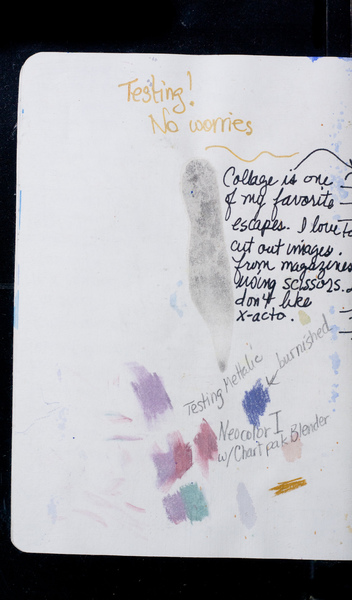 Testing!
No worries
Collage is one
of my favorite
escapes. I love to
cut out images
from magazines
using scissors.
don't like
x-acto.
Testing Metallic
burnished
Neocolor I
w/ Chartpak Blender